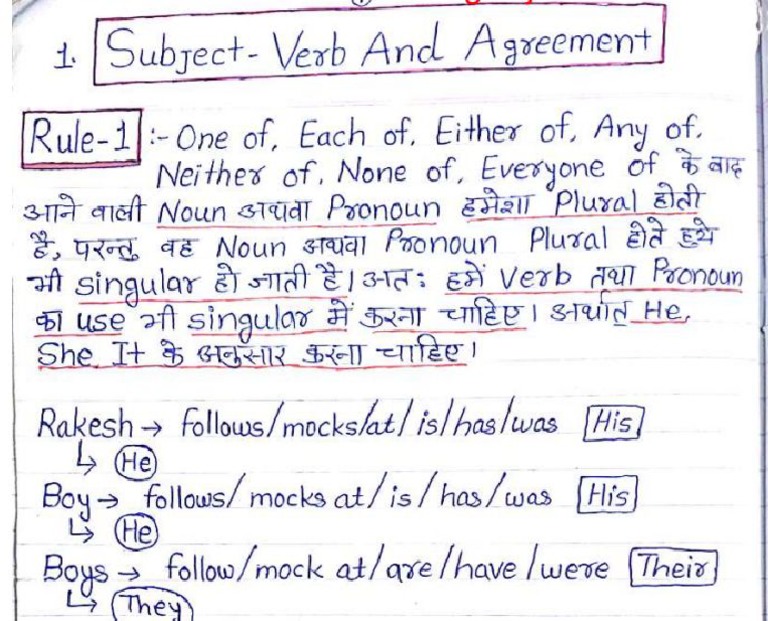 1. Subject-Verb And Agreement
Rule-1 :- One of, Each of, Either of, Any of,
Neither of, None of, Everyone of के बाद
आने वाली Noun अथवा Pronoun हमेशा Plural होती
है, परन्तु वह Noun अथवा Pronoun Plural होते हुये
भी singular हो जाती है। अतः हमें Verb तथा Pronoun
का use भी singular में करना चाहिए। अर्थात् He,
She, It के अनुसार करना चाहिए।
Rakesh → follows/mocks/at/is/has/was His
↳ He
Boy → follows/mocks at/is/has/was His
↳ He
Boys → follow/mock at/are/have/were Their
↳ They